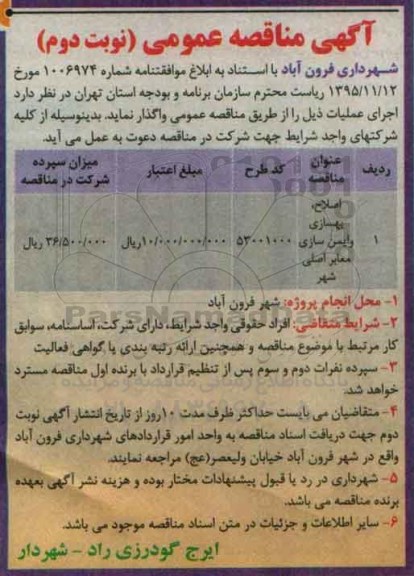 آگهی مناقصه عمومی (نوبت دوم)
شهرداری فرون آباد با استناد به ابلاغ موافقتنامه شماره ۱۰۰۶۹۷۴ مورخ
۱۳۹۵/۱۱/۱۲ ریاست محترم سازمان برنامه و بودجه استان تهران در نظر دارد
اجرای عملیات ذیل را از طریق مناقصه عمومی واگذار نماید. بدینوسیله از کلیه
شرکتهای واجد شرایط جهت شرکت در مناقصه دعوت به عمل می آید.
ردیف عنوان مناقصه کد طرح مبلغ اعتبار میزان سپرده شرکت در مناقصه
۱ اصلاح، بهسازی وایمن سازی معابر اصلی شهر ۵۳۰۰۱۰۰۰ ۱۰/۰۰۰/۰۰۰/۰۰۰ریال ۳۶/۵۰۰/۰۰۰ ریال
۱- محل انجام پروژه: شهر فرون آباد
۲- شرایط متقاضی: افراد حقوقی واجد شرایط، دارای شرکت، اساسنامه، سوابق
کار مرتبط با موضوع مناقصه و همچنین ارائه رتبه بندی یا گواهی فعالیت
۳- سپرده نفرات دوم و سوم پس از تنظیم قرارداد با برنده اول مناقصه مسترد
خواهد شد.
۴- متقاضیان می بایست حداکثر ظرف مدت ۱۰روز از تاریخ انتشار آگهی نوبت
دوم جهت دریافت اسناد مناقصه به واحد امور قراردادهای شهرداری فرون آباد
واقع در شهر فرون آباد خیابان ولیعصر(عج) مراجعه نمایند.
۵- شهرداری در رد یا قبول پیشنهادات مختار بوده و هزینه نشر آگهی بعهده
برنده مناقصه می باشد.
۶- سایر اطلاعات و جزئیات در متن اسناد مناقصه موجود می باشد.
ایرج گودرزی راد - شهردار
ParsNamadData